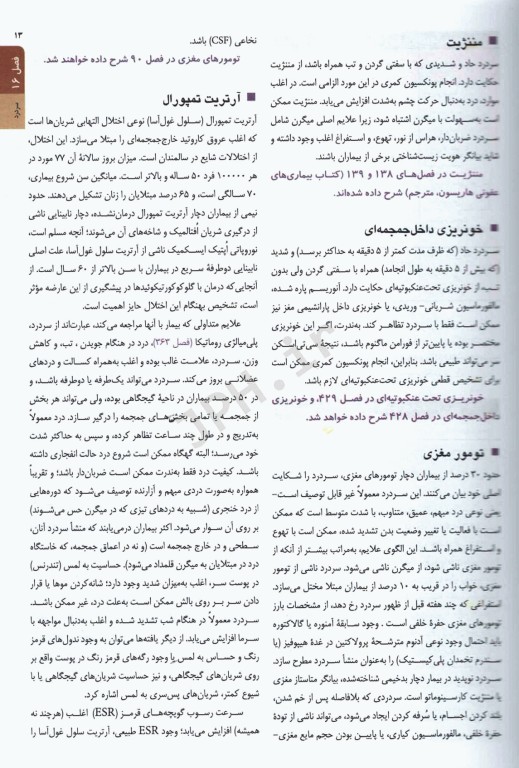 ۱۳
فصل ۱۶
سردرد
■ مننژیت
سردرد حاد و شدیدی که با سفتی گردن و تب همراه باشد، از مننژیت
حکایت دارد. انجام پونکسیون کمری در این مورد الزامی است. در اغلب
موارد، درد به‌دنبال حرکت چشم به‌شدت افزایش می‌یابد. مننژیت ممکن
است به‌سهولت با میگرن اشتباه شود، زیرا علایم اصلی میگرن شامل
سردرد ضربان‌دار، هراس از نور، تهوع، و استفراغ اغلب وجود داشته و
شاید بیانگر هویت زیست‌شناختی برخی از بیماران باشند.
مننژیت در فصل‌های ۱۳۸ و ۱۳۹ (کتاب بیماری‌های
عفونی هاریسون، مترجم) شرح داده شده‌اند.
■ خونریزی داخل‌جمجمه‌ای
سردرد حاد (که ظرف مدت کمتر از ۵ دقیقه به حداکثر برسد) و شدید
(که بیش از ۵ دقیقه به طول انجامد) همراه با سفتی گردن ولی بدون
تب، از خونریزی تحت‌عنکبوتیه‌ای حکایت دارد. آنوریسم پاره شده،
مالفورماسیون شریانی- وریدی، یا خونریزی داخل پارانشیمی مغز نیز
ممکن است فقط با سردرد تظاهر کند. به‌ندرت، اگر این خونریزی
مختصر بوده یا پایین‌تر از فورامن ماگنوم باشد، نتیجهٔ سی‌تی‌اسکن
سر می‌تواند طبیعی باشد. بنابراین، انجام پونکسیون کمری ممکن است
برای تشخیص قطعی خونریزی تحت‌عنکبوتیه‌ای لازم باشد.
خونریزی تحت عنکبوتیه‌ای در فصل ۴۲۹، و خونریزی
داخل‌جمجمه‌ای در فصل ۴۲۸ شرح داده خواهد شد.
■ تومور مغزی
حدود ۳۰ درصد از بیماران دچار تومورهای مغزی، سردرد را شکایت
اصلی خود بیان می‌کنند. این سردرد معمولاً غیر قابل توصیف است-
یعنی نوعی درد مبهم، عمیق، متناوب، با شدت متوسط است که ممکن
است با فعالیت یا تغییر وضعیت بدن تشدید شده، ممکن است با تهوع
و استفراغ همراه باشد. این الگوی علایم، به‌مراتب بیشتر از آنکه از
تومور مغزی ناشی شود، از میگرن ناشی می‌شود. سردرد ناشی از تومور
مغزی، خواب را در قریب به ۱۰ درصد از بیماران مبتلا مختل می‌سازد.
استفراغی که چند هفته قبل از ظهور سردرد رخ دهد، از مشخصات بارز
تومورهای مغزی حفرهٔ خلفی است. وجود سابقهٔ آمنوره یا گالاکتوره
باید احتمال وجود نوعی آدنوم مترشحهٔ پرولاکتین در غدهٔ هیپوفیز (یا
سندرم تخمدان پلی‌کیستیک) را به‌عنوان منشأ سردرد مطرح سازد.
سردرد نوپدید در بیمار دچار بدخیمی شناخته‌شده، بیانگر متاستاز مغزی
یا مننژیت کارسینوماتو است. سردردی که بلافاصله پس از خم شدن،
بلند کردن اجسام، یا سُرفه کردن ایجاد می‌شود، می‌تواند ناشی از تودهٔ
حفرهٔ خلفی، مالفورماسیون کیاری، یا پایین بودن حجم مایع مغزی-
نخاعی (CSF) باشد.
تومورهای مغزی در فصل ۹۰ شرح داده خواهند شد.
■ آرتریت تمپورال
آرتریت تمپورال (سلول غول‌آسا) نوعی اختلال التهابی شریان‌ها است
که اغلب عروق کاروتید خارج‌جمجمه‌ای را مبتلا می‌سازد. این اختلال،
از اختلالات شایع در سالمندان است. میزان بروز سالانهٔ آن ۷۷ مورد در
هر ۱۰۰۰۰۰ فرد ۵۰ ساله و بالاتر است. میانگین سن شروع بیماری،
۷۰ سالگی است، و ۶۵ درصد مبتلایان را زنان تشکیل می‌دهند. حدود
نیمی از بیماران دچار آرتریت تمپورال درمان‌نشده، دچار نابینایی ناشی
از درگیری شریان اُفتالمیک و شاخه‌های آن می‌شوند؛ آنچه مسلم است،
نوروپاتی اُپتیک ایسکمیک ناشی از آرتریت سلول غول‌آسا، علت اصلی
نابینایی دوطرفهٔ سریع در بیماران با سن بالاتر از ۶۰ سال است. از
آنجایی‌که درمان با گلوکوکورتیکوئیدها در پیشگیری از این عارضه مؤثر
است، تشخیص بهنگام این اختلال حایز اهمیت است.
علایم متداولی که بیمار با آنها مراجعه می‌کند، عبارت‌اند از سردرد،
پلی‌میالژی روماتیکا (فصل ۳۶۳)، درد در هنگام جویدن، تب، و کاهش
وزن. سردرد، علامت غالب بوده و اغلب به‌همراه کسالت و دردهای
عضلانی بروز می‌کند. سردرد می‌تواند یک‌طرفه یا دوطرفه باشد، و
در ۵۰ درصد بیماران در ناحیهٔ گیجگاهی بوده، ولی می‌تواند هر بخش
از جمجمه یا تمامی بخش‌های جمجمه را درگیر سازد. درد معمولاً
به‌تدریج و در طول چند ساعت تظاهر کرده، و سپس به حداکثر شدت
خود می‌رسد؛ البته گهگاه ممکن است شروع درد حالت انفجاری داشته
باشد. کیفیت درد فقط به‌ندرت ممکن است ضربان‌دار باشد؛ و تقریباً
همواره به‌صورت دردی مبهم و آزارنده توصیف می‌شود که دوره‌هایی
از درد خنجری (شبیه به دردهای تیزی که در میگرن حس می‌شوند)
بر روی آن سوار می‌شود. اکثر بیماران درمی‌یابند که منشأ سردرد آنان،
سطحی و در خارج جمجمه است (و نه در اعماق جمجمه، که خاستگاه
درد در مبتلایان به میگرن قلمداد می‌شود). حساسیت به لمس (تندرنس)
در پوست سر، اغلب به‌میزان شدید وجود دارد؛ شانه‌کردن موها یا قرار
دادن سر بر روی بالش ممکن است به‌علت درد، غیر ممکن باشد.
سردرد معمولاً در هنگام شب تشدید شده و اغلب به‌دنبال مواجهه با
سرما افزایش می‌یابد. از دیگر یافته‌ها می‌توان به وجود ندول‌های قرمز
رنگ و حساس به لمس یا وجود رگه‌های قرمز رنگ در پوست واقع بر
روی شریان‌های گیجگاهی، و نیز حساسیت شریان‌های گیجگاهی یا با
شیوع کمتر، شریان‌های پس‌سری به لمس اشاره کرد.
سرعت رسوب گویچه‌های قرمز (ESR) اغلب (هرچند نه
همیشه) افزایش می‌یابد؛ وجود ESR طبیعی، آرتریت سلول غول‌آسا را